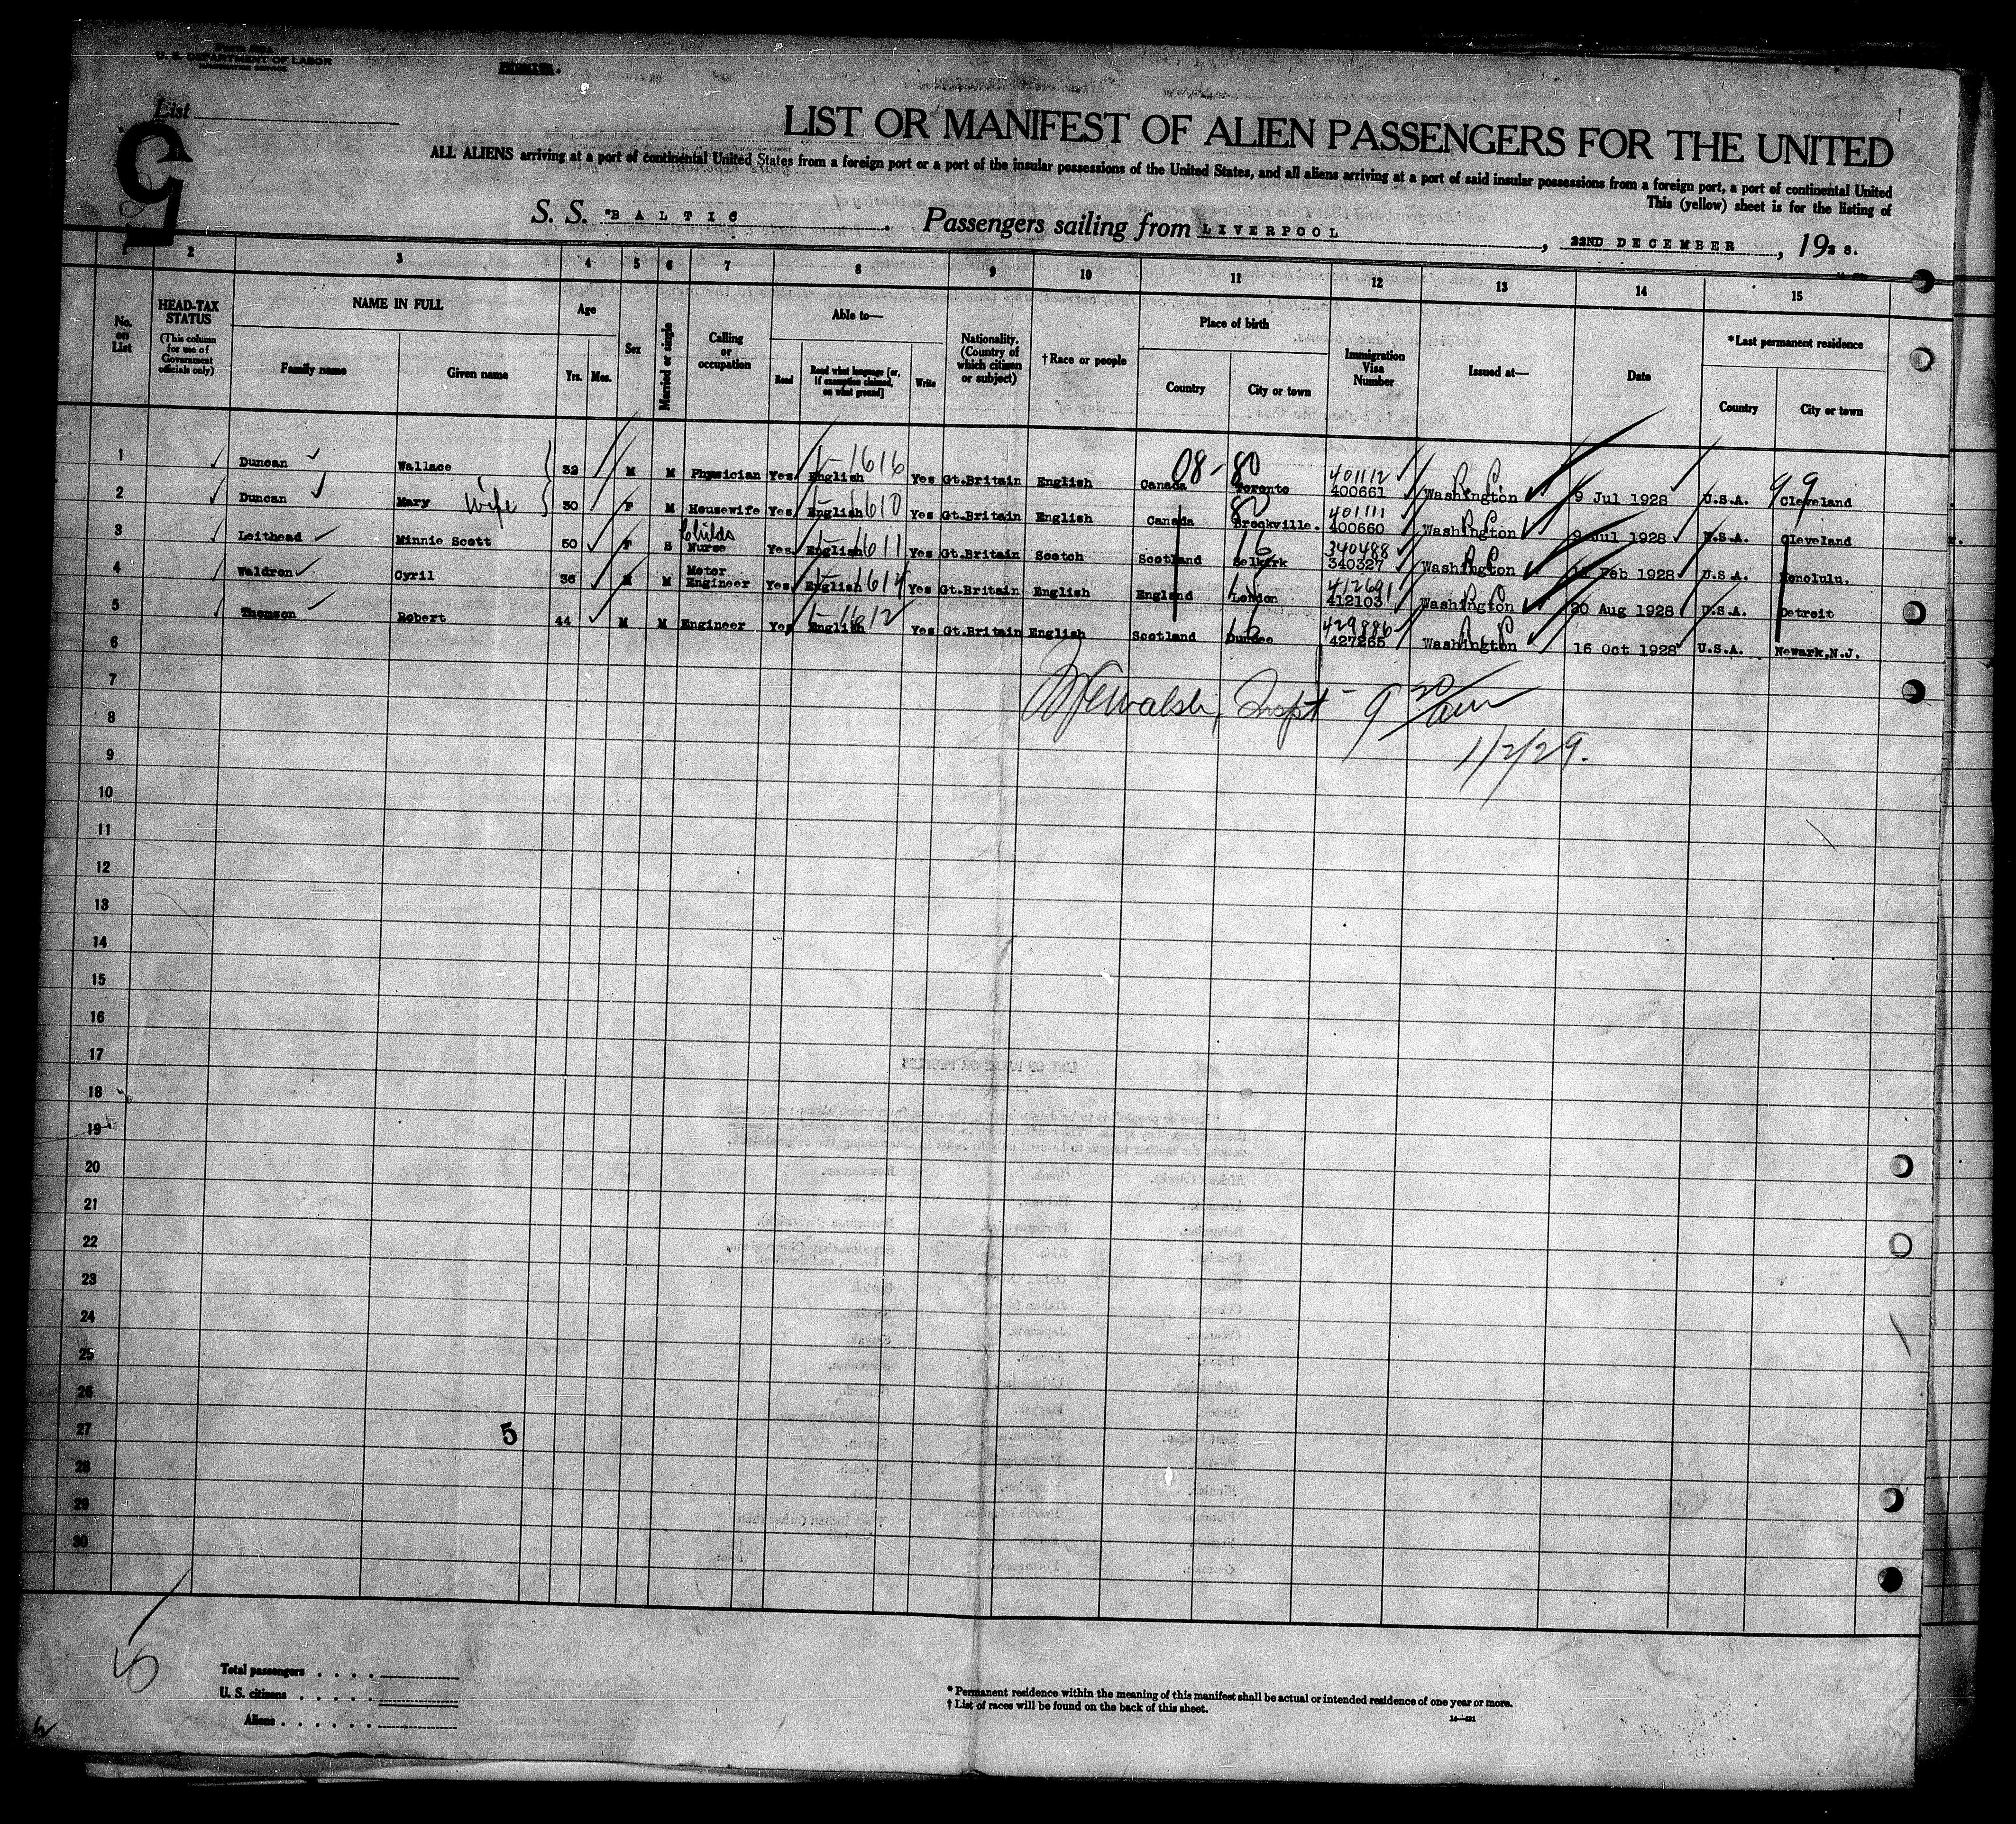 U. S. DEPARTMENT OF LABOR
List
5
LIST OR MANIFEST OF ALIEN PASSENGERS FOR THE UNITED
ALL ALIENS arriving at a port of continental United States from a foreign port or a port of the insular possessions of the United States, and all aliens arriving at a port of said insular possessions from a foreign port, a port of continental United
This (yellow) sheet is for the listing of
S. S. "BALTIC . Passengers sailing from LIVERPOOL , 22ND DECEMBER , 1928.
1 2 3 4 5 6 7 8 9 10 11 12 13 14 15
No. on List
HEAD-TAX STATUS
(This column for use of Government officials only)
NAME IN FULL
Family name Given name
Age
Yrs. Mos.
Sex
Married or single
Calling or occupation
Able to—
Read
Read what language [or, if exemption claimed, on what ground]
Write
Nationality. (Country of which citizen or subject)
† Race or people
Place of birth
Country City or town
Immigration Visa Number
Issued at—
Date
*Last permanent residence
Country City or town
1 Duncan Wallace 32 M M Physician Yes English 1-1616 Yes Gt.Britain English Canada 08-80 Toronto 401112 400661 Washington 9 Jul 1928 U.S.A. 99 Cleveland
2 Duncan Mary Wife 30 F M Housewife Yes English 1-1610 Yes Gt.Britain English Canada 80 Brockville. 401111 400660 Washington 9 Jul 1928 U.S.A. Cleveland
3 Leithead Minnie Scott 50 F S Childs Nurse Yes English 1-1611 Yes Gt.Britain Scotch Scotland 16 Selkirk 340488 340327 Washington Feb 1928 U.S.A. Honolulu.
4 Waldron Cyril 36 M M Motor Engineer Yes English 1-1614 Yes Gt.Britain English England London 412691 412103 Washington 20 Aug 1928 U.S.A. Detroit
5 Thomson Robert 44 M M Engineer Yes English 1-1612 Yes Gt.Britain English Scotland Dundee 429886 427265 Washington 16 Oct 1928 U.S.A. Newark,N.J.
6
7
Walsh, Inspt - 9 30/am
8
1/2/29.
9
10
11
12
13
14
15
16
17
18
19
20
21
22
23
24
25
26
27 5
28
29
30
5
Total passengers
U. S. citizens
Aliens
* Permanent residence within the meaning of this manifest shall be actual or intended residence of one year or more.
† List of races will be found on the back of this sheet.